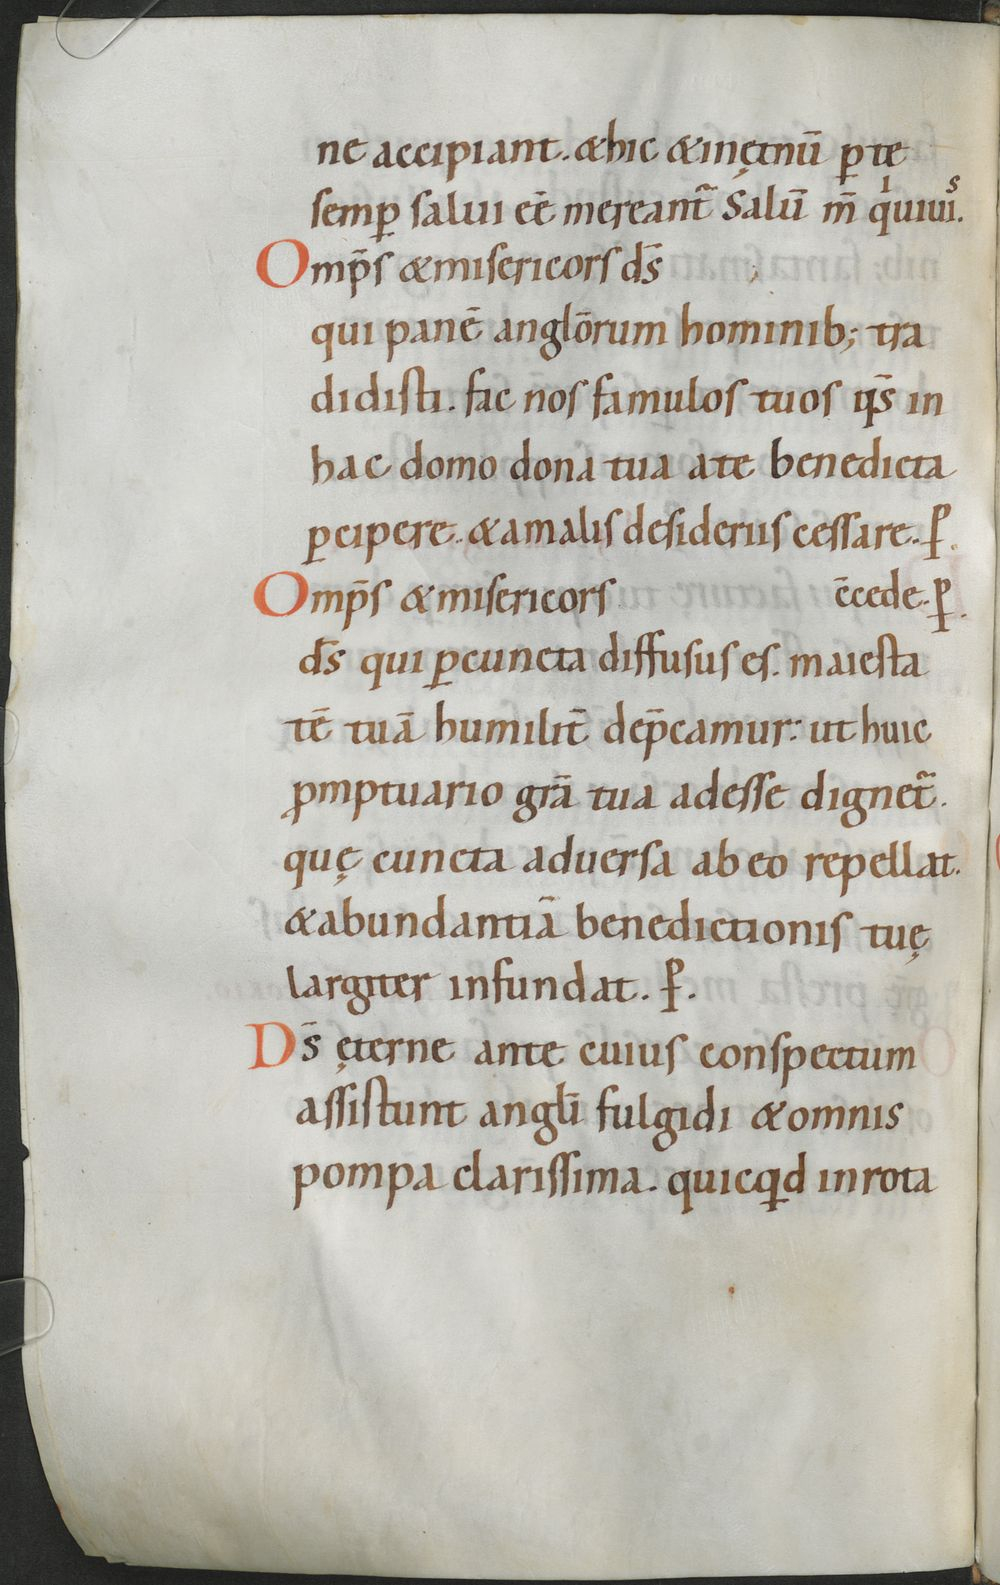 ne accipiant. & hic & inętnū p̱ te
semp̱ salui eē mereant᷑ Salū m̄ qͥuiuiˢ.
Omp̄s & misericors d̄s
qui panē anglōrum hominib; tra
didisti. fac nos famulos tuos qs̄ in
hac domo dona tua a te benedicta
p̱cipere. & a malis desideriis cessare. P̱.
Omp̄s & misericors c̄cede. P̱.
d̄s qui p̱ cuncta diffusus es. maiesta
tē tuā humilit̄ dep̄camur: ut huic
ꝓmptuario gr̄a tua adesse dignet᷑.
quę cuncta aduersa ab eo repellat.
& abundantiā benedictionis tuę
largiter infundat. P̱.
D̄s ęterne ante cuius conspectum
assistunt angl̄i fulgidi & omnis
pompa clarissima. quicqd in rota